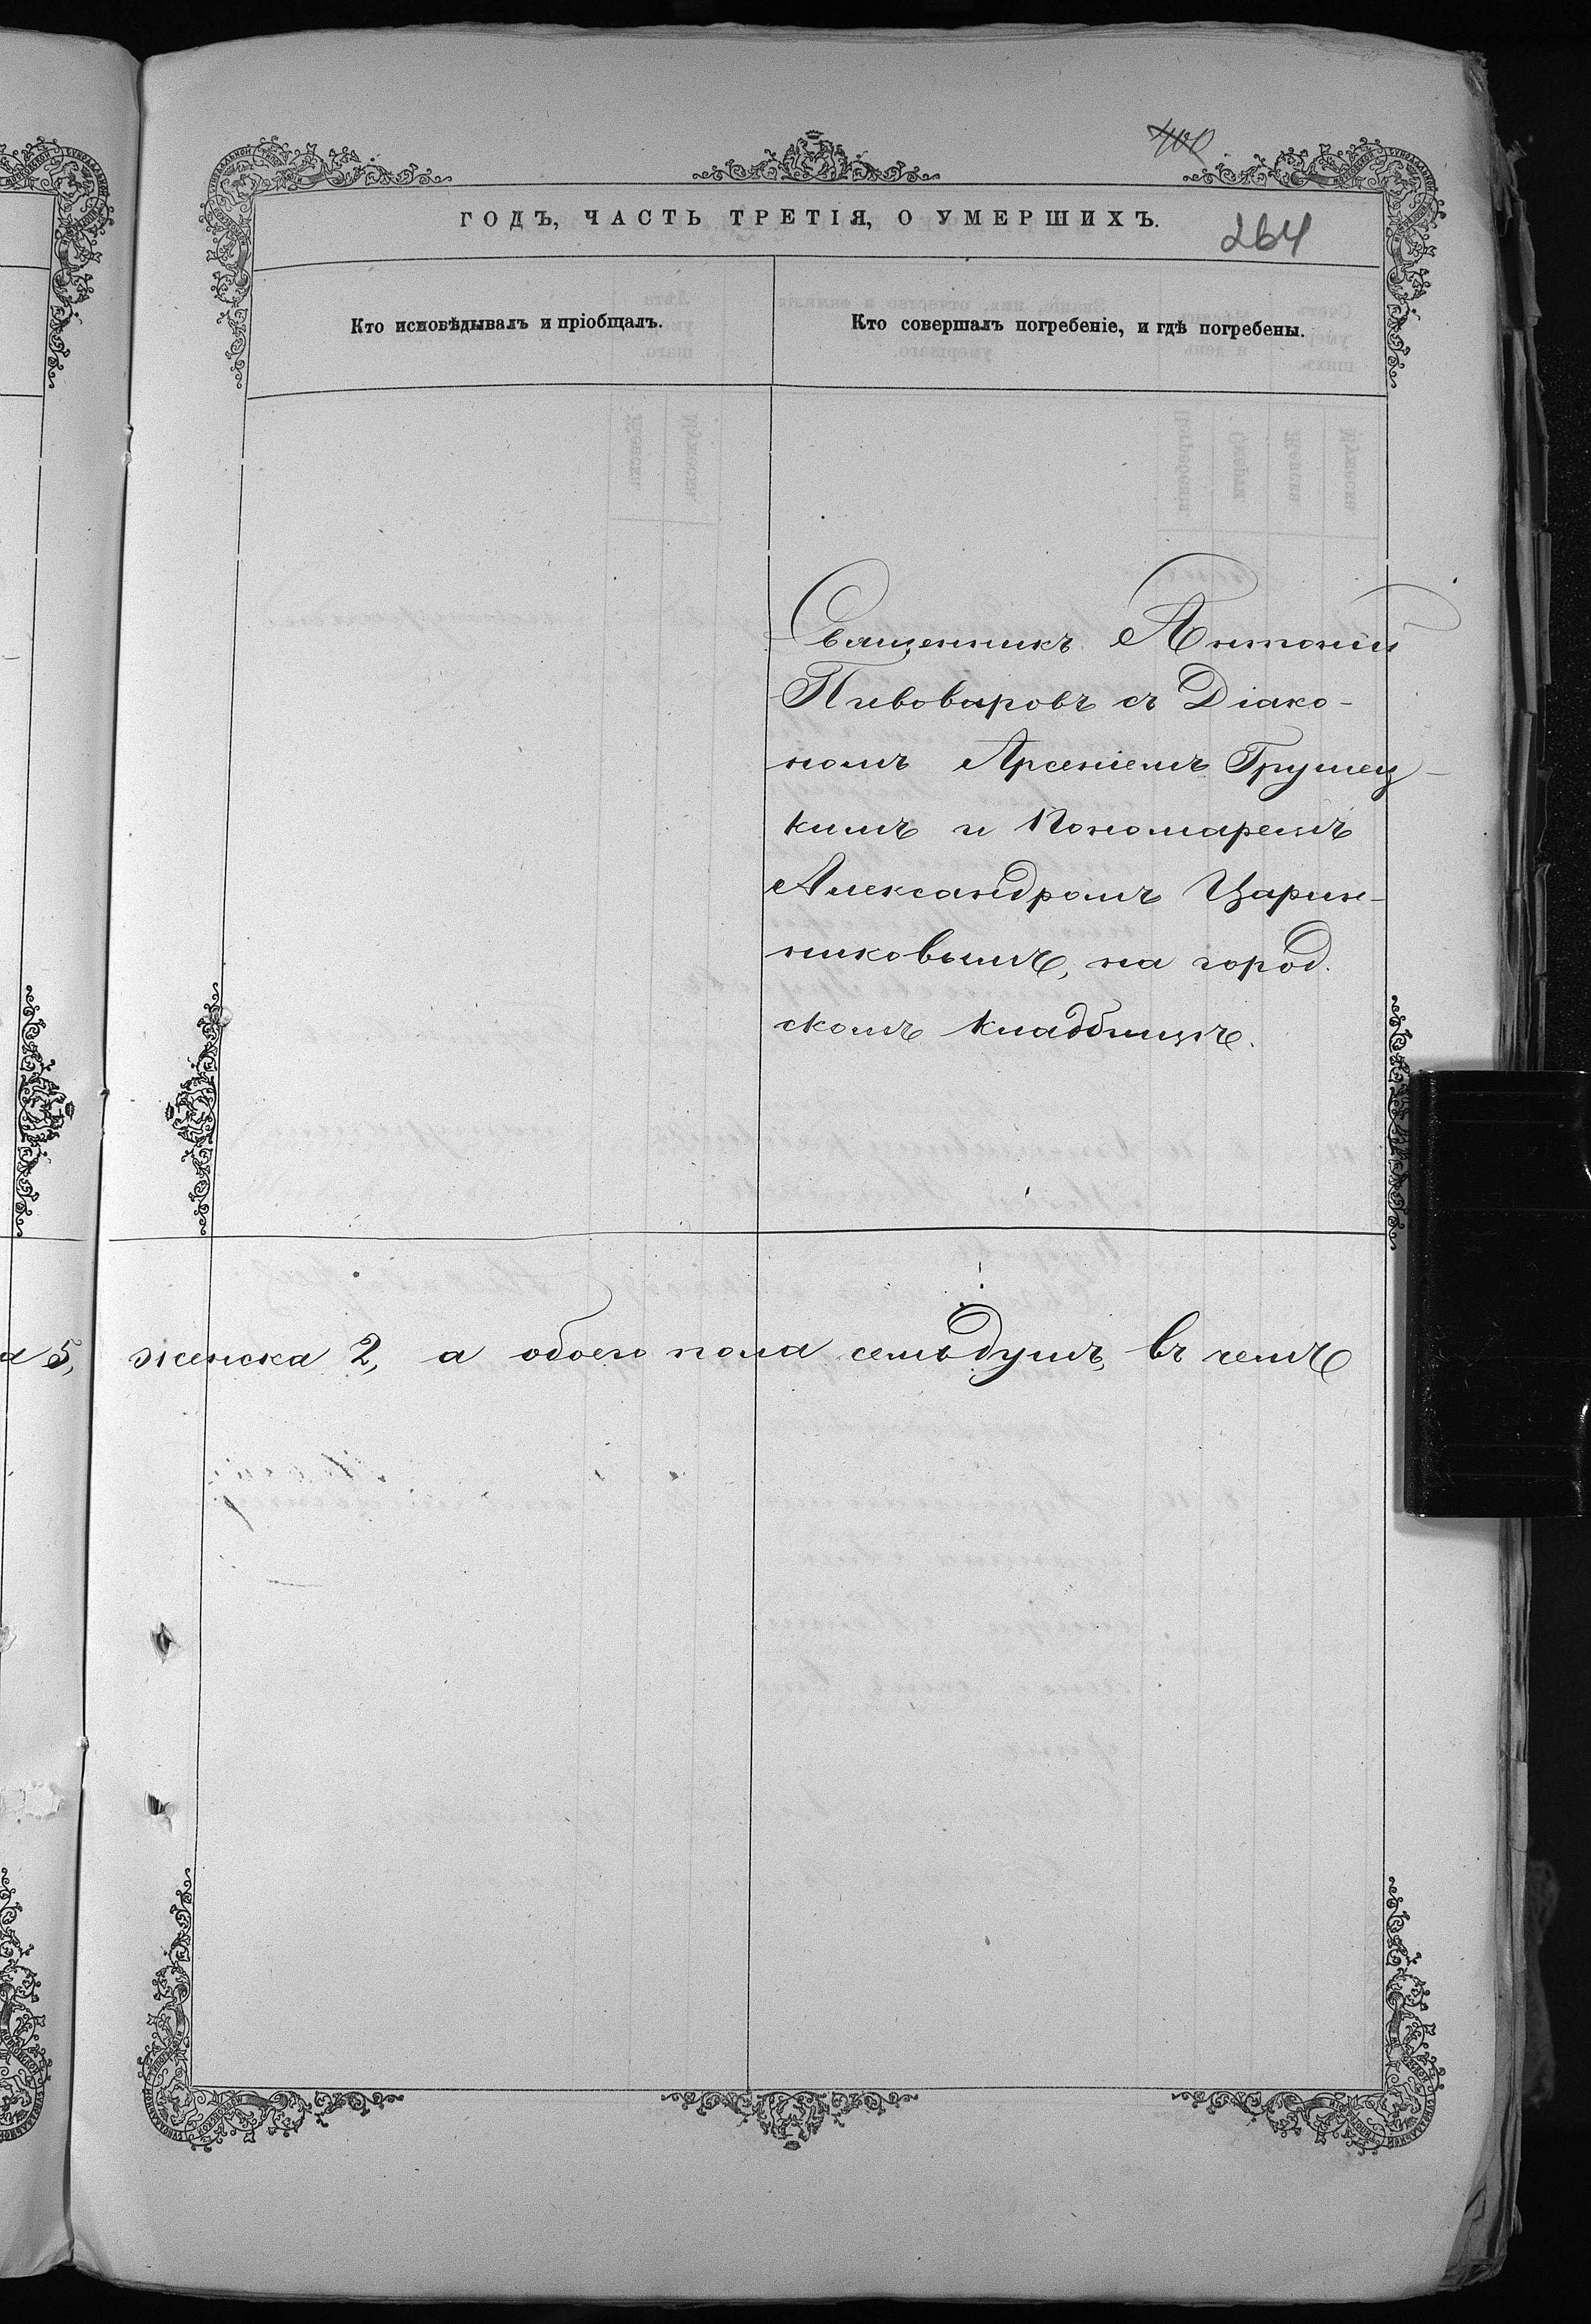 400
ГОДЪ, ЧАСТЬ ТРЕТІЯ, О УМЕРШИХЪ.
264
Кто исповѣдывалъ и пріобщалъ.
Кто совершалъ погребеніе, и гдѣ погребены.
Священникъ Антоній
Пивоваровъ съ Діако-
номъ Арсеніемъ Грушец-
кимъ и Пономаремъ
Александромъ Царин-
никовымъ, на город.
скомъ кладбищѣ.
а 5, женска 2, а обоего пола семь душъ, въ чемъ